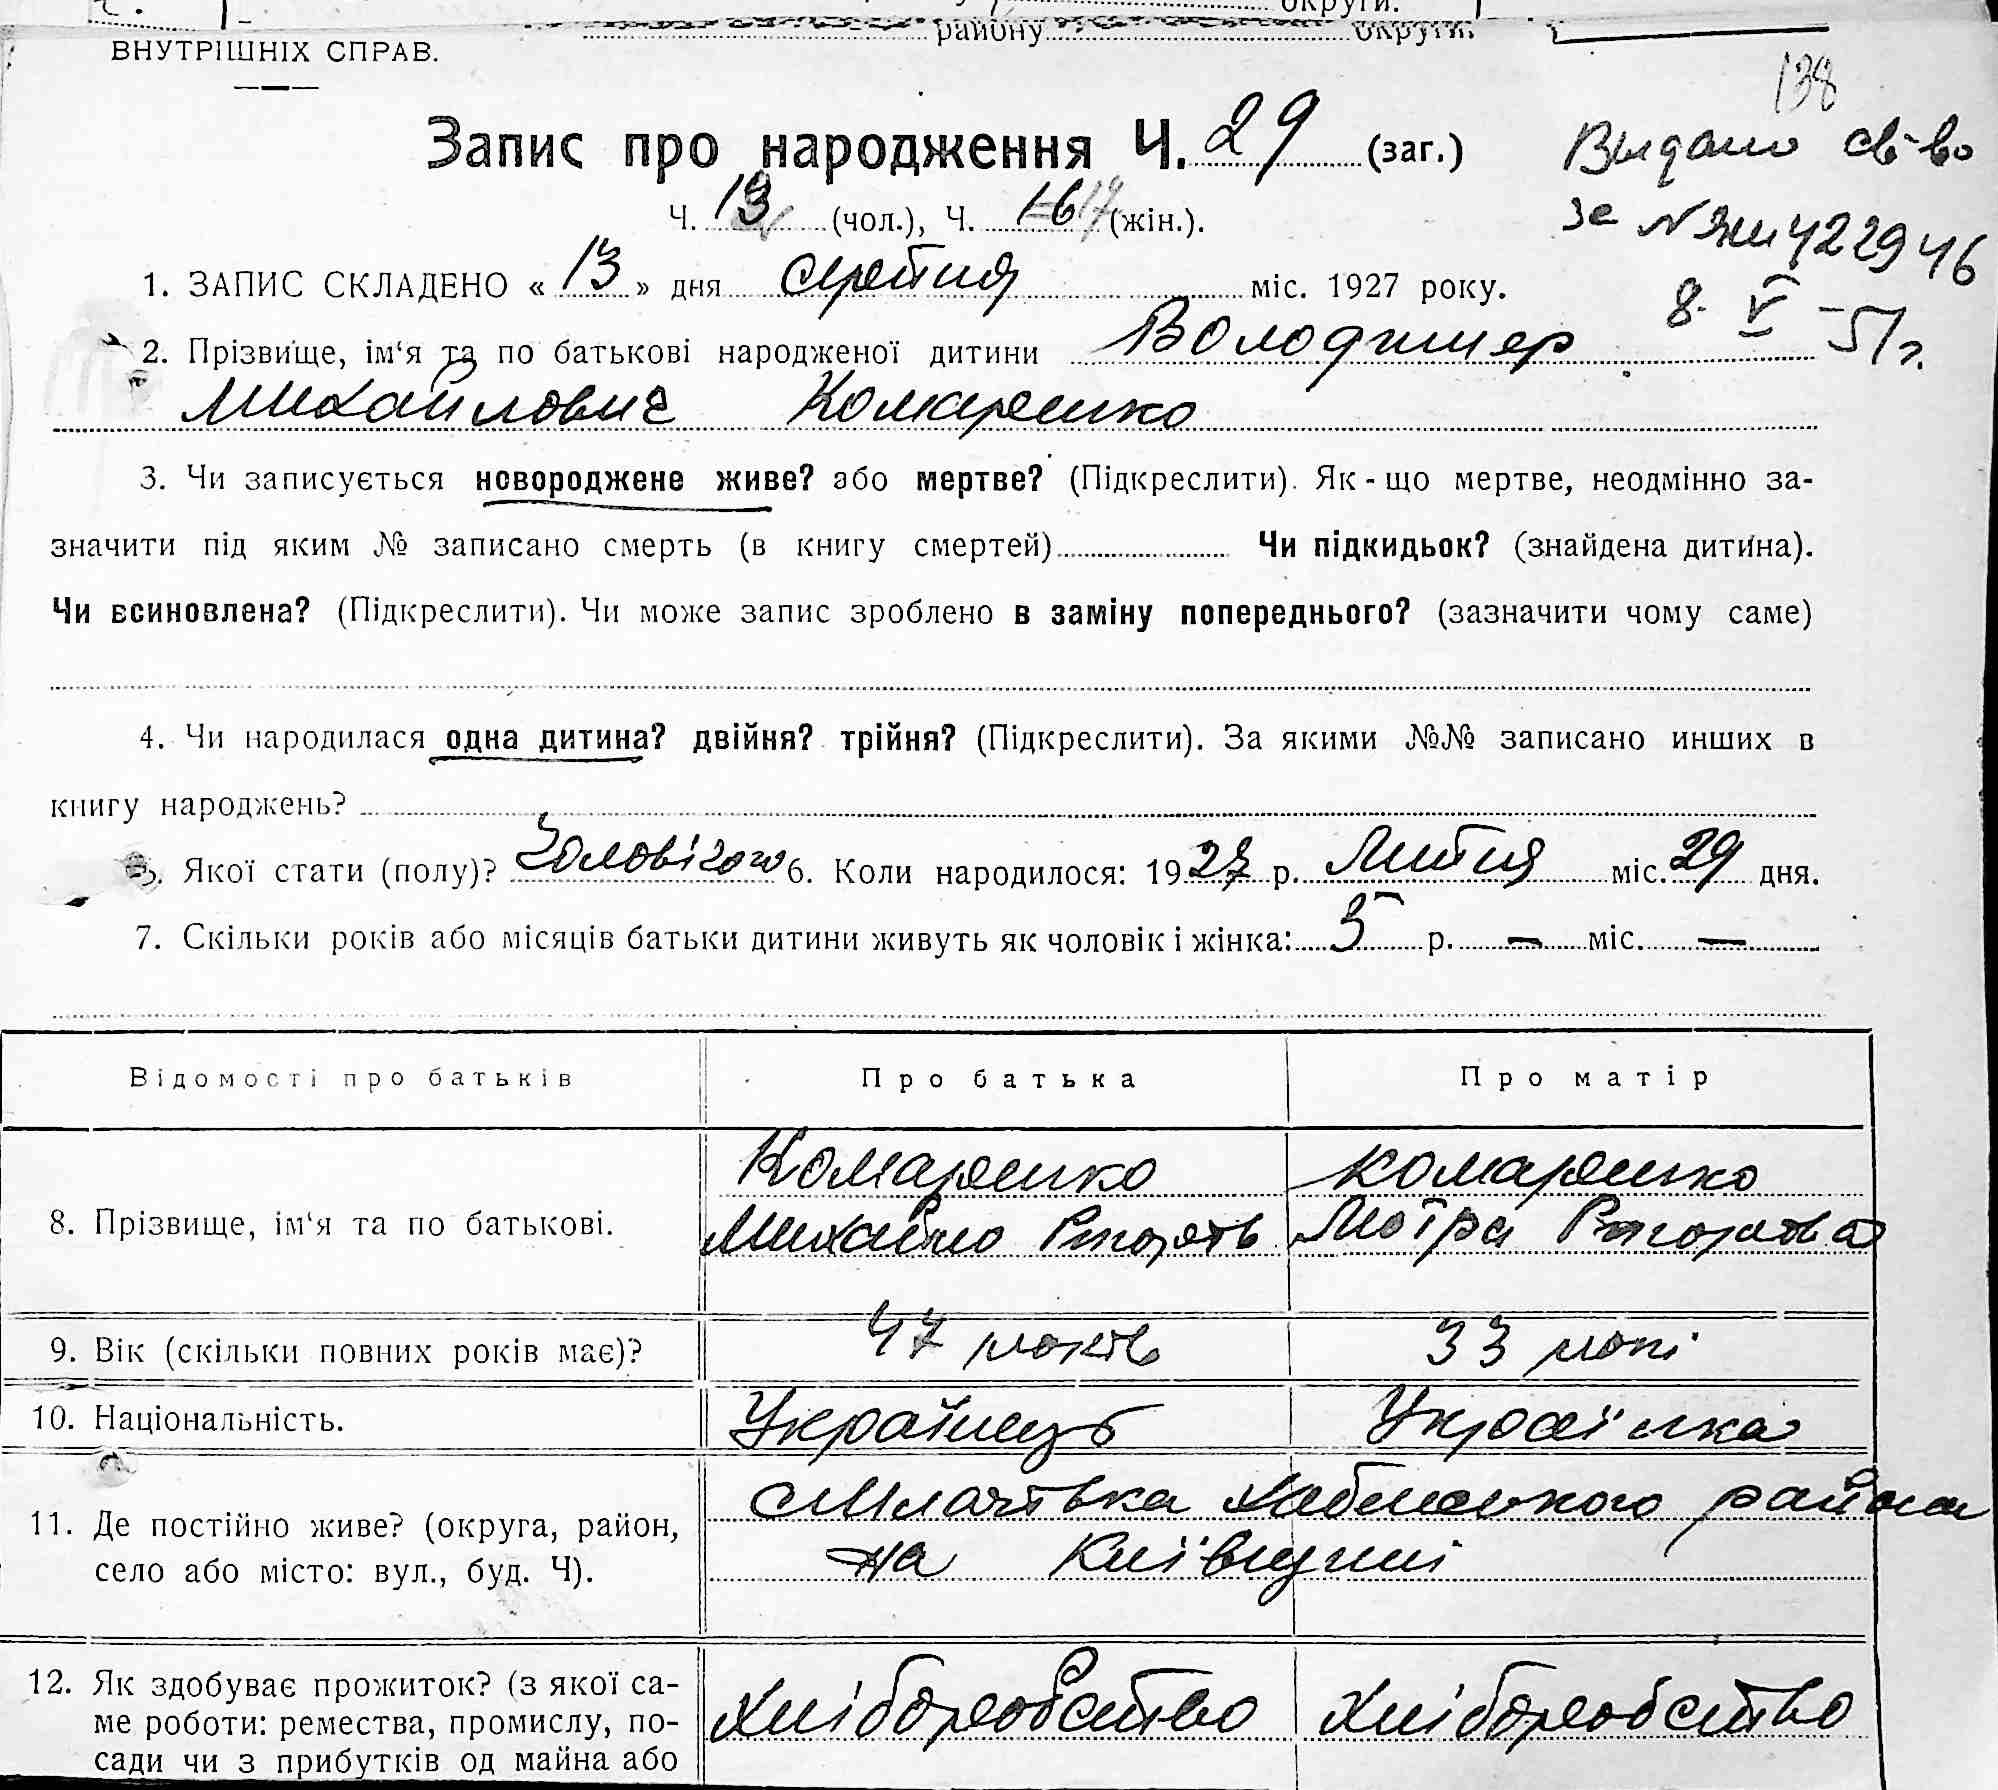 округи.
району округи.
ВНУТРІШНІХ СПРАВ.
138
Запис про народження Ч. 29 (заг.)
Выдано св-во
Ч. 13 (чол.), Ч. 16 (жін.).
за №
422946
1. ЗАПИС СКЛАДЕНО « 13 » дня серпня міс. 1927 року.
8. V – 51 г.
2. Прізвище, ім‘я та по батькові народженої дитини Володимер
Михайлович Комаренко
3. Чи записується новороджене живе? або мертве? (Підкреслити). Як - що мертве, неодмінно за-
значити під яким № записано смерть (в книгу смертей) Чи підкидьок? (знайдена дитина).
Чи всиновлена? (Підкреслити). Чи може запис зроблено в заміну попереднього? (зазначити чому саме)
4. Чи народилася одна дитина? двійня? трійня? (Підкреслити). За якими №№ записано инших в
книгу народжень?
5. Якої стати (полу)? Чоловічого 6. Коли народилося: 1927 р. Липня міс. 29 дня.
7. Скільки років або місяців батьки дитини живуть як чоловік і жінка: 5 р. — міс. —
Відомості про батьків Про батька Про матір
Комаренко комаренко
8. Прізвище, ім‘я та по батькові. Михайло Мотря
9. Вік (скільки повних років має)? 47 років 33 рокі
10. Національність. Українець Українка
11. Де постійно живе? (округа, район, район
село або місто: вул., буд. Ч). на Київщині
12. Як здобуває прожиток? (з якої са- Хліборобство Хліборобство
ме роботи: ремества, промислу, по-
сади чи з прибутків од майна або